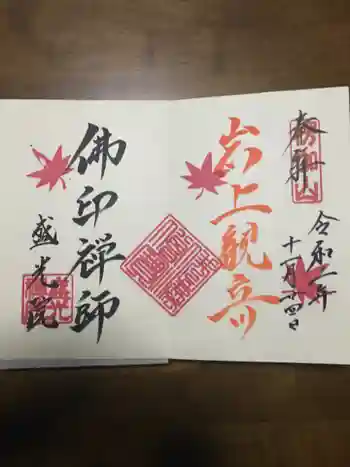 奉拝
令和二年
十一月十四日
岩上観音
佛印禅師
盛光院